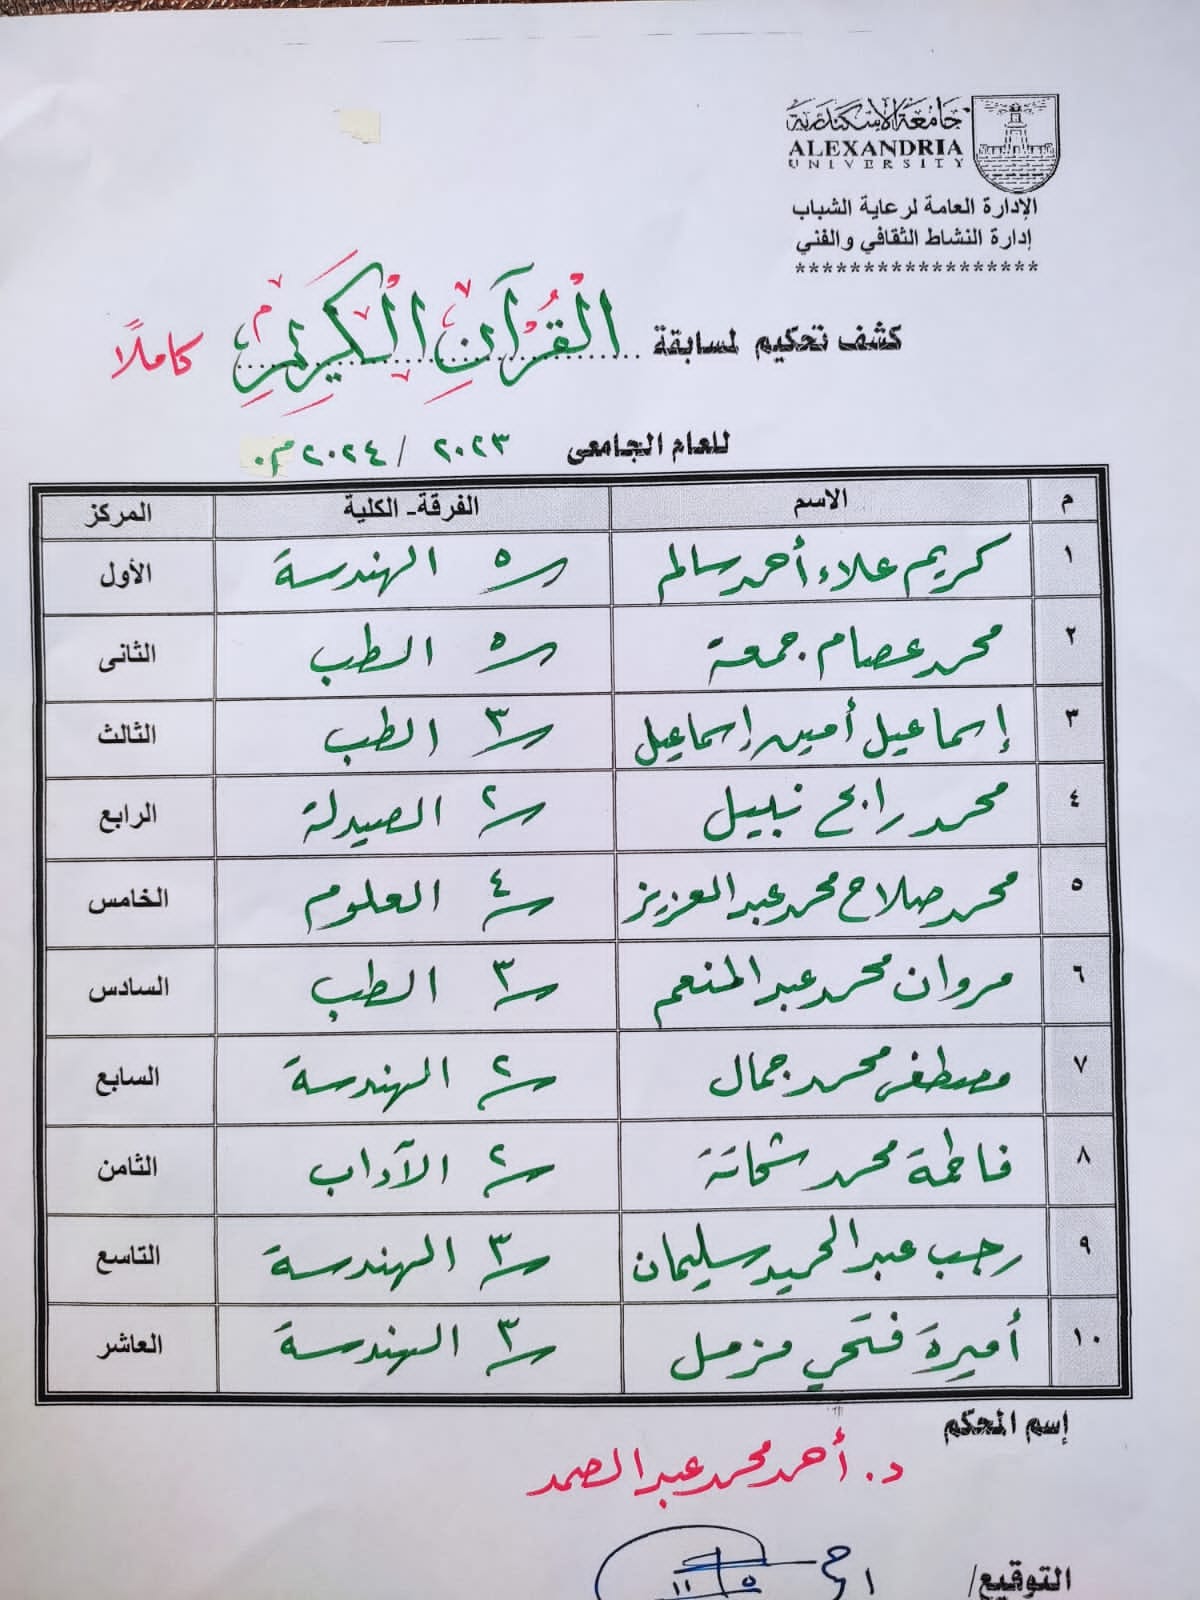 جامعة الإسكندرية
ALEXANDRIA
UNIVERSITY
الإدارة العامة لرعاية الشباب
إدارة النشاط الثقافي والفني
******************
كشف تحكيم لمسابقة القُرآنِ الْكَرِيمِ كاملًا
للعام الجامعى ٢٠٢٣ / ٢٠٢٤م.
م الاسم الفرقة- الكلية المركز
١ كريم علاء أحمد سالم ٥ الهندسة الأول
٢ محمد عصام جمعة ٥ الطب الثانى
٣ إسماعيل أمين إسماعيل ٣ الطب الثالث
٤ محمد رابح نبيل ٢ الصيدلة الرابع
٥ محمد صلاح محمد عبد العزيز ٤ العلوم الخامس
٦ مروان محمد عبد المنعم ٣ الطب السادس
٧ مصطفى محمد جمال ٢ الهندسة السابع
٨ فاطمة محمد شحاتة ٢ الآداب الثامن
٩ رجب عبد الحميد سليمان ٣ الهندسة التاسع
١٠ أميرة فتحي مزمل ٣ الهندسة العاشر
إسم المحكم
د. أحمد محمد عبد الصمد
التوقيع/